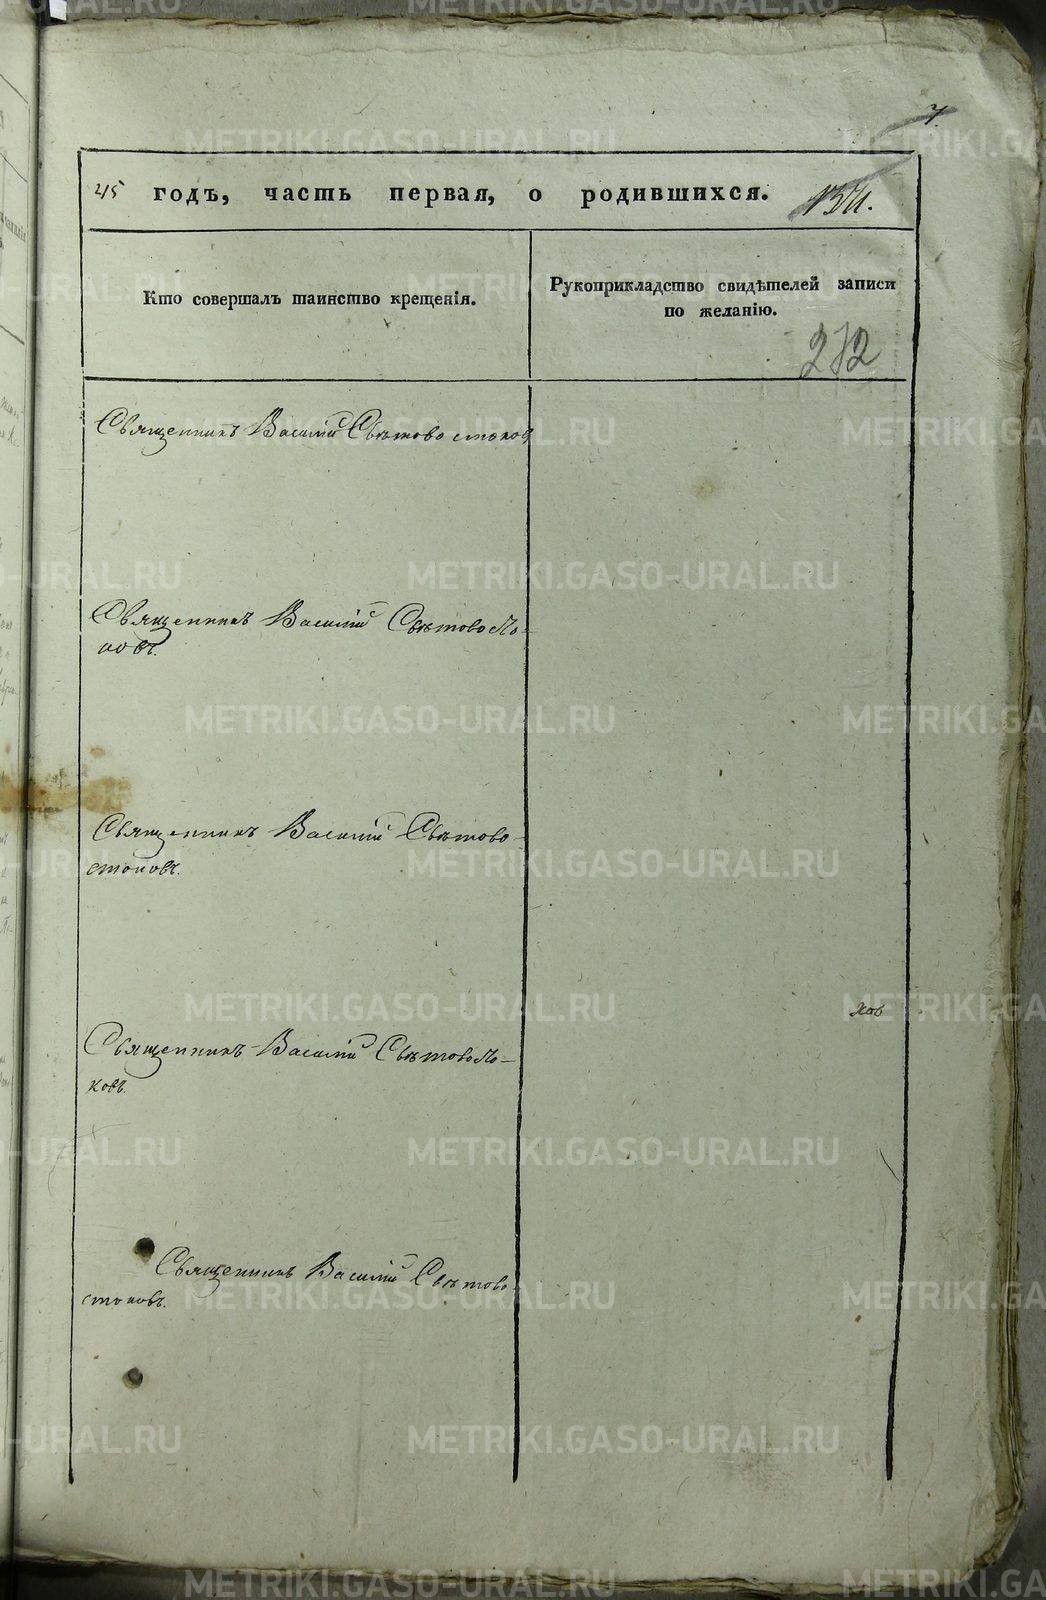 45 годъ, часть первая, о родившихся. 134.
Кто совершалъ таинство крещенія.
Рукоприкладство свидѣтелей записи
по желанію.
212
Священникъ Василій Свѣтовостоков
Священникъ Василій Свѣтовосто-
ковъ.
Священникъ Василій Свѣтово-
стоковъ.
Священникъ Василій Свѣтовосто-
ковъ.
ков
Священникъ Василій Свѣтово-
стоковъ.
METRIKI.GASO-URAL.RU